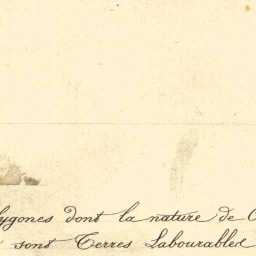 lygones dont la nature de
sont Terres Labourables